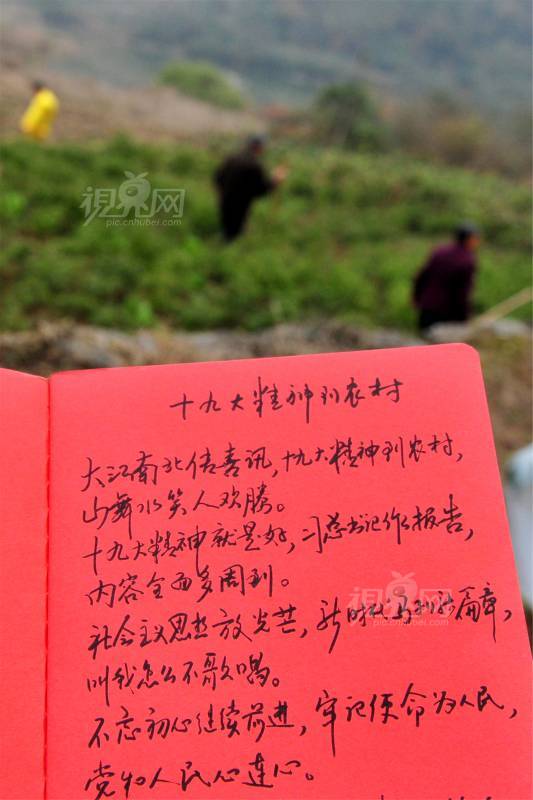 视界网
pic.cnhubei.com
十九大精神到农村
大江南北传喜讯,十九大精神到农村,
山舞水笑人欢腾。
十九大精神就是好,习总书记作报告,
内容全面多周到。
社会主义思想放光芒,新时代 新篇章,
叫我怎么不歌唱。
不忘初心继续前进,牢记使命为人民,
党和人民心连心。
视界网
pic.cnhubei.com